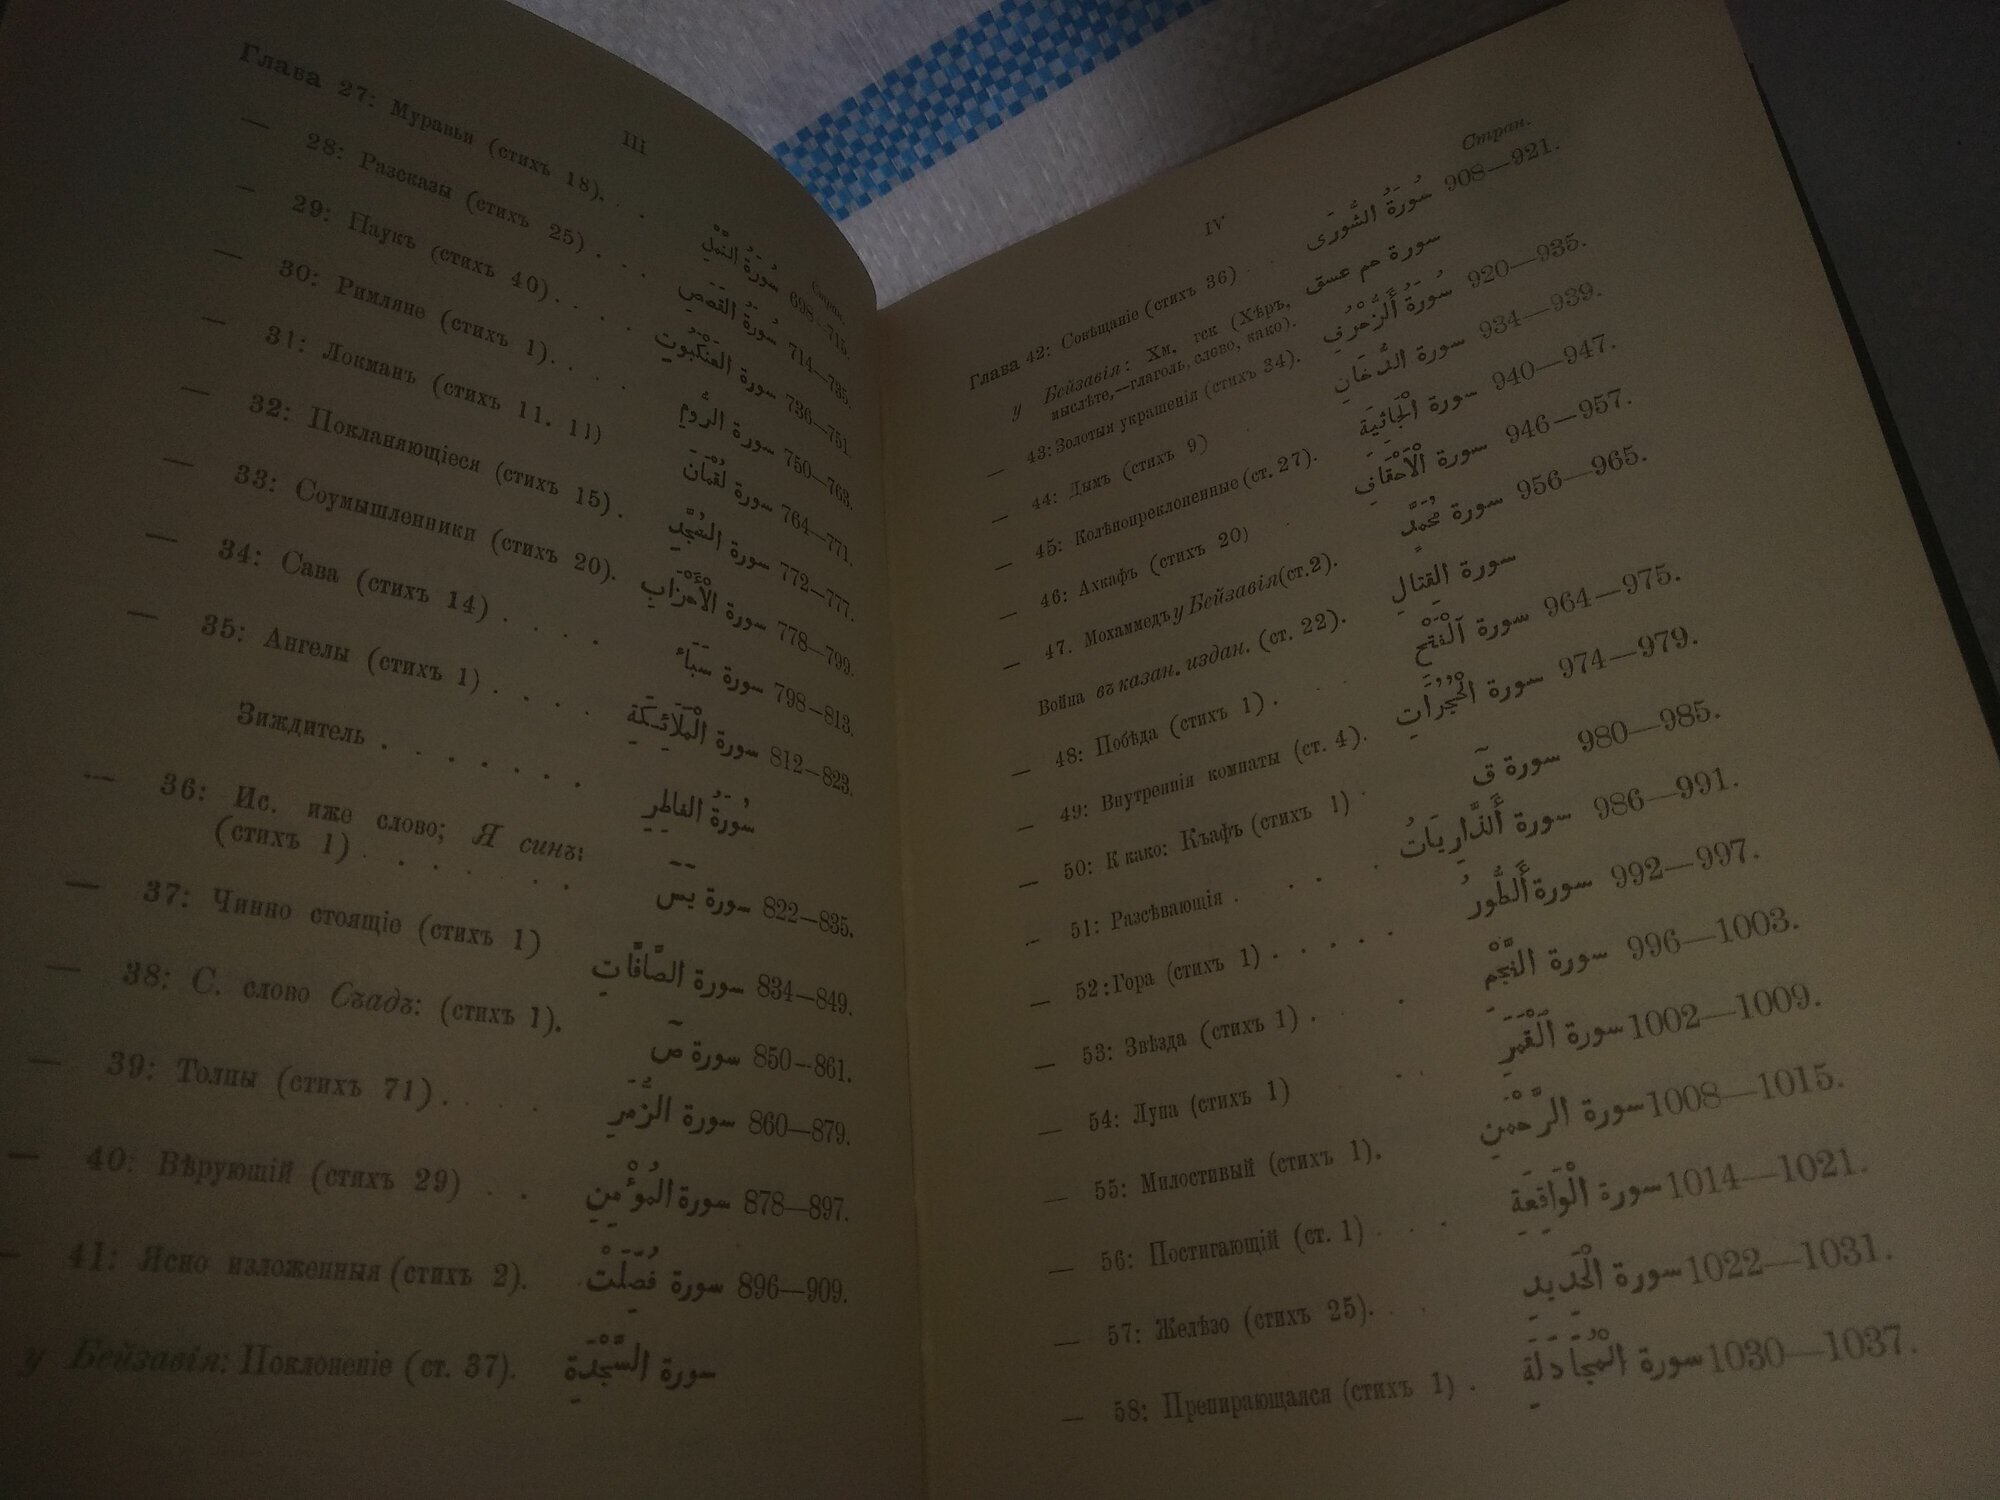 III
Стран.
Глава 27: Муравьи (стихъ 18). . . سُورَةُ النَّمْلِ 698—715.
— 28: Разсказы (стихъ 25) . . . سُورَةُ القَصَصِ 714—735.
— 29: Наукъ (стихъ 40). . . . سورة العَنْكَبُوتِ 736—751.
— 30: Римляне (стихъ 1). . . . سورة الرُّومِ 750—763.
— 31: Локманъ (стихъ 11. 11) سورة لُقْمَانَ 764—771.
— 32: Покланяющіеся (стихъ 15). سورة السُّجَّدِ 772—777.
— 33: Соумышленники (стихъ 20). سورة الْأَحْزَابِ 778—799.
— 34: Сава (стихъ 14) . . . . سورة سَبَاء 798—813.
— 35: Ангелы (стихъ 1) . . . . سورة الْمَلَائِكَةِ 812—823.
Зиждитель . . . . . . . سُورَةُ الفَاطِرِ
— 36: Ис. иже слово; Я синъ:
(стихъ 1) . . . . . . سورة يٓسٓ 822—835.
— 37: Чинно стоящіе (стихъ 1) سورة الصَّافَّاتِ 834—849.
— 38: С. слово Съадъ: (стихъ 1). سورة صٓ 850—861.
— 39: Толпы (стихъ 71). . . . سورة الزُّمَرِ 860—879.
— 40: Вѣрующій (стихъ 29) . . سورة المُؤْمِنِ 878—897.
— 41: Ясно изложенныя (стихъ 2). سورة فُصِّلَتْ 896—909.
у Бейзавія: Поклоненіе (ст. 37). سورة السَّجْدَةِ
IV
Стран.
Глава 42: Совѣщаніе (стихъ 36) . . سُورَةُ الشُّورَى 908—921.
у Бейзавія: Хм. гск (Хѣръ, سورة حم عسق
мыслѣте,—глаголь, слово, како).
— 43: Золотыя украшенія (стихъ 34). سُورَةُ أَلزُّخْرُفِ 920—935.
— 44: Дымъ (стихъ 9) . سورة الدُّخَانِ 934—939.
— 45: Колѣнопреклоненные (ст. 27). سورة الْجَاثِيَةِ 940—947.
— 46: Ахкафъ (стихъ 20) . سورة الْأَحْقَافِ 946—957.
— 47. Мохаммедъ у Бейзавія (ст.2). سورة مُحَمَّدٍ 956—965.
Война въ казан. издан. (ст. 22). سورة القِتَالِ
— 48: Побѣда (стихъ 1) . . . سورة اَلْفَتْحِ 964—975.
— 49: Внутреннія комнаты (ст. 4). سورة الْحُجُرَاتِ 974—979.
— 50: К како: Къафъ (стихъ 1) . سورة قٓ 980—985.
— 51: Разсѣвающія . . . . سورة أَلذَّارِيَاتُ 986—991.
— 52: Гора (стихъ 1) . . . . . سورة أَلطُّورُ 992—997.
— 53: Звѣзда (стихъ 1) . . سورة النَّجْمِ 996—1003.
— 54: Луна (стихъ 1) . . سورة اَلْقَمَرِ 1002—1009.
— 55: Милостивый (стихъ 1). سورة الرَّحْمٰنِ 1008—1015.
— 56: Постигающій (ст. 1) . . . سورة الْوَاقِعَةِ 1014—1021.
— 57: Желѣзо (стихъ 25). . . سورة الْحَدِيدِ 1022—1031.
— 58: Препирающаяся (стихъ 1) . سورة الْمُجَادَلَةِ 1030—1037.